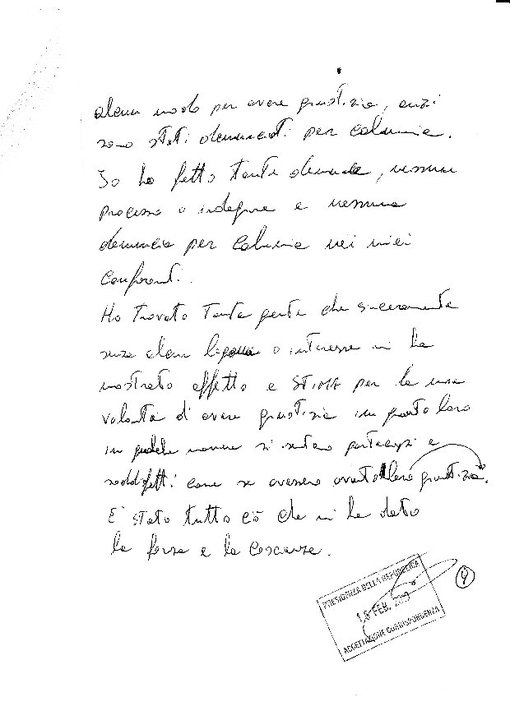 alcun modo per avere giustizia, anzi
sono stati denunciati per calunnia.
Io ho fatto tante denunce, nessun
processo o indagine e nessuna
denuncia per calunnia nei miei
confronti.
Ho trovato tanta gente che sinceramente
senza alcun o interesse mi ha
mostrato affetto e STIMA per la mia
volontà di avere giustizia in quanto loro
in qualche maniera si sentono partecipi e
soddisfatti come se avessero avuto loro giustizia.
E' stato tutto ciò che mi ha dato
la forza e la
PRESIDENZA DELLA REPUBBLICA
18 FEB.
ACCETTAZIONE CORRISPONDENZA
4